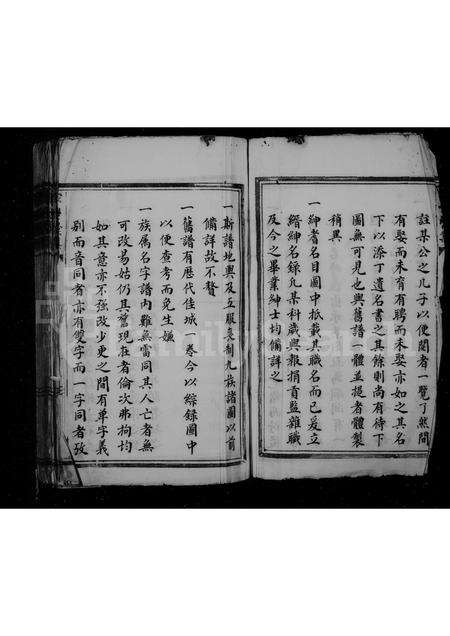 註某公之几子以便閱者一覽了然間
有娶而未育有聘而未娶亦如之其名
下以添丁遺名書之其餘則尚有待下
圖無可見也與舊譜一體並提者體製
稍異
一紳耆名目圖中抵載其職名而已爰立
縉紳名錄凡某科歲與報捐貢監雜職
及今之畢業紳士均備詳之
一新譜地輿及五服喪制九族諸圖以前
備詳故不贅
一舊譜有歷代佳城一卷今以綜錄圖中
以便查考而免生嫌
一族属名字譜內雖無雷同其人亡者無
可改易姑仍其舊現在者倫次弗拘均
如其意亦不強改少更之間有单字義
别而音同者亦有雙字而一字同者攷